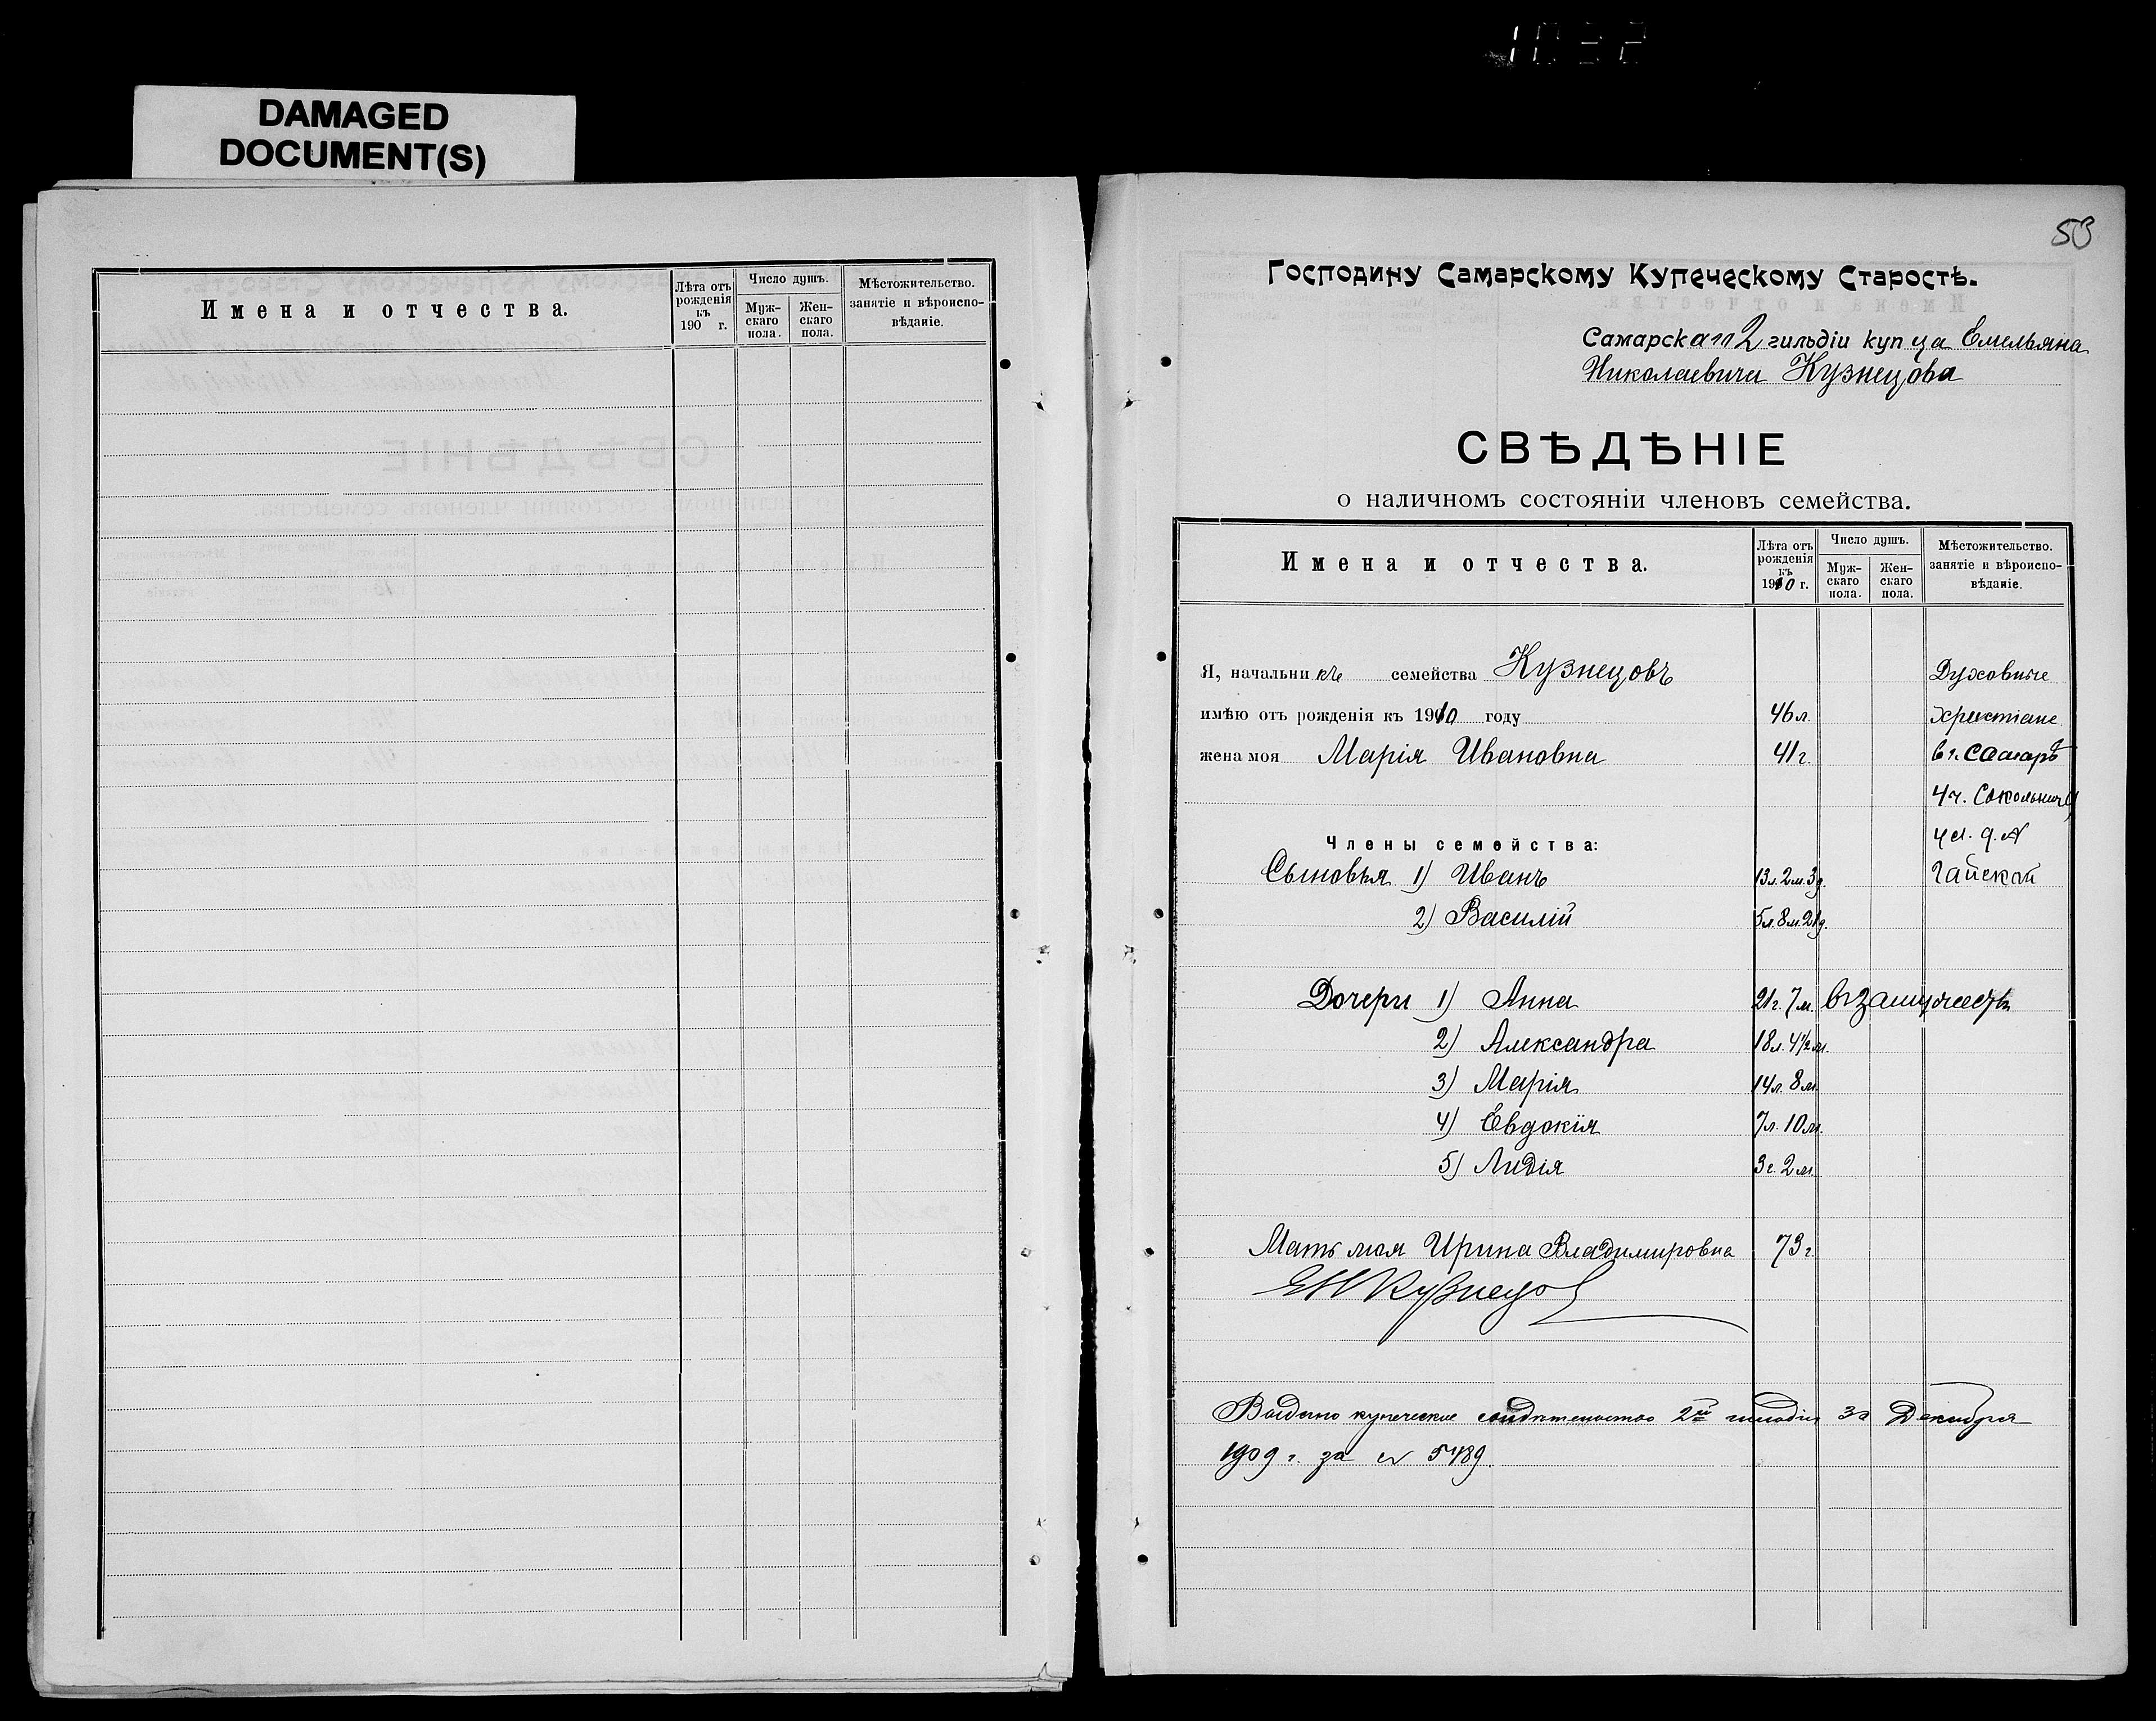 1022
DAMAGED
DOCUMENT(S)
Имена и отчества.
Лѣта отъ рожденія къ 190 г.
Число душъ.
Мужскаго пола.
Женскаго пола.
Мѣстожительство. занятіе и вѣроисповѣданіе.
53
Господину Самарскому Купеческому Старостѣ.
Самарскаго 2 гильдіи купца Емельяна
Николаевича Кузнецова
СВѢДѢНІЕ
о наличномъ состояніи членовъ семейства.
Имена и отчества.
Лѣта отъ рожденія къ 1910 г.
Число душъ.
Мужскаго пола.
Женскаго пола.
Мѣстожительство. занятіе и вѣроисповѣданіе.
Я, начальникъ семейства Кузнецовъ Духовные
имѣю отъ рожденія къ 1910 году 46 л. Христіане
жена моя Марія Ивановна 41 г. в г. Самарѣ
4 ч. Сокольнич
Члены семейства: ул. д. №
Сыновья 1) Иванъ 13 л. 2 м. 3 д.
2) Василій 5 л. 8 м. 21 д.
Дочери 1) Анна 21 г. 7 м. въ замужествѣ
2) Александра 18 л. 4½ м.
3) Марія 14 л. 8 м.
4) Евдокія 7 л. 10 м.
5) Лидія 3 г. 2 м.
Мать моя Ирина Владимировна 73 г.
ЕНКузнецов
Выдано купеческое свидѣтельство 2й гильдіи Декабря
1909 г. за № 5489.